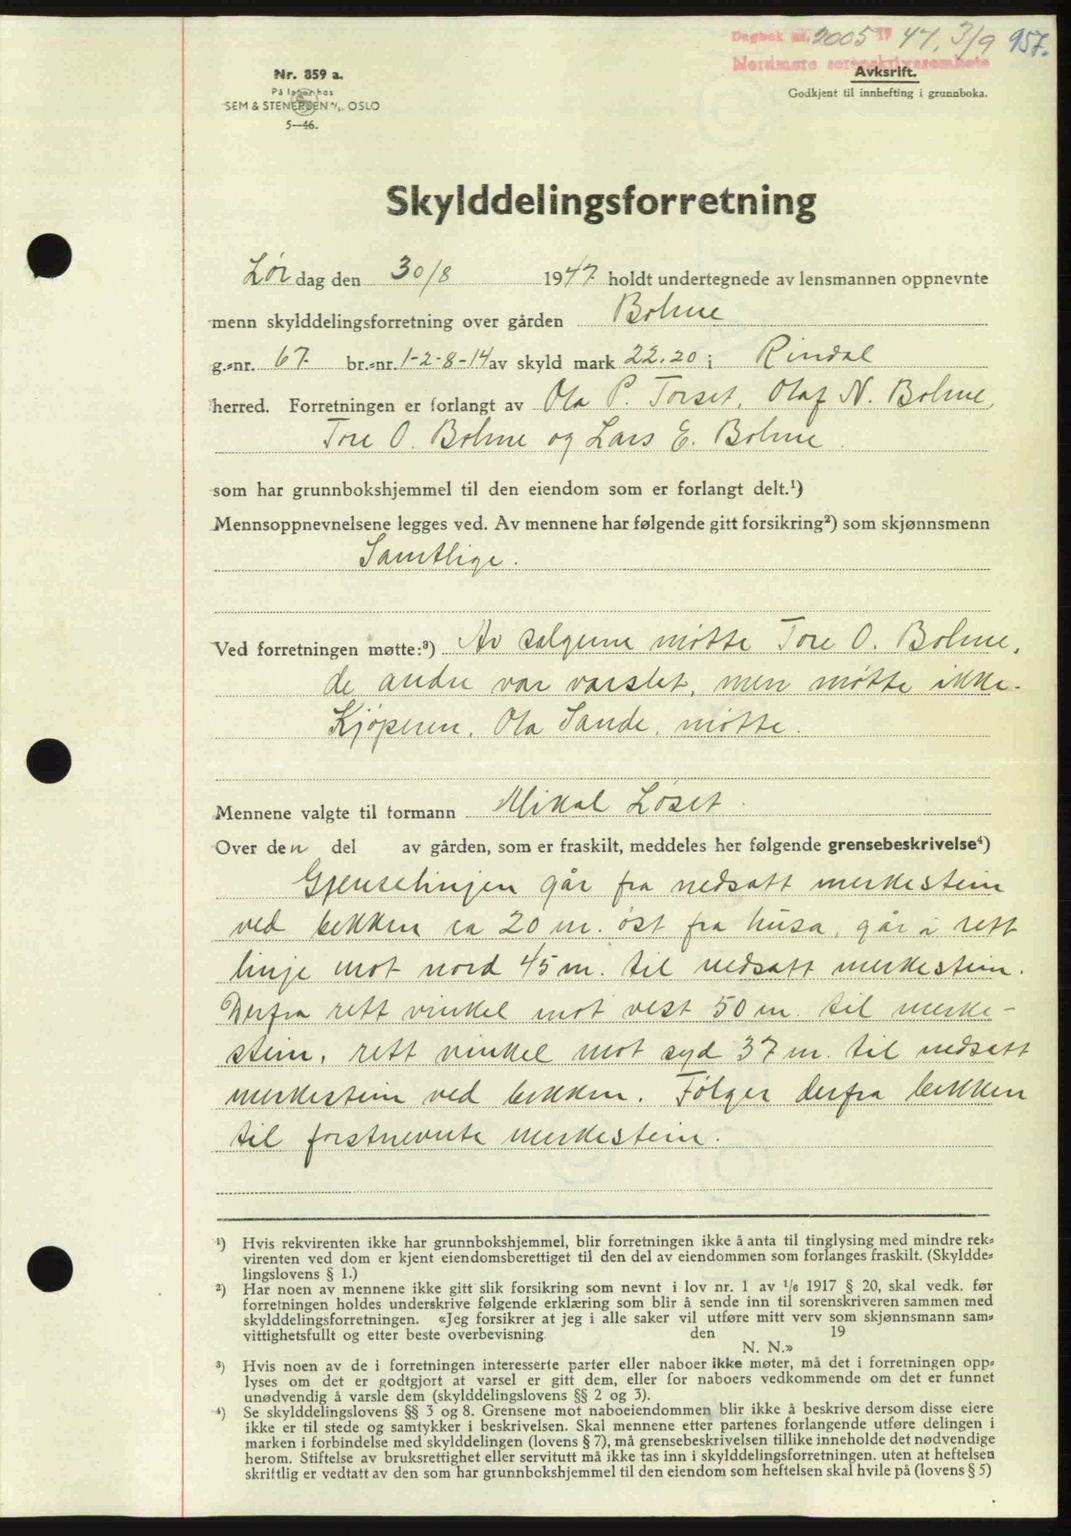 Dagbok nr. 2005 1947, 3/9 957.
Nordmøre sorenskriverembete
Nr. 859 a.
På lager hos
SEM & STENERSEN A/S. OSLO
5—46.
Avskrift.
Godkjent til innhefting i grunnboka.
Skylddelingsforretning
Lør dag den 30/8 1947 holdt undertegnede av lensmannen oppnevnte
menn skylddelingsforretning over gården Bolme
g.-nr. 67 br.-nr. 1-2-8-14 av skyld mark 22.20 i Rindal
herred. Forretningen er forlangt av Ola P. Torset, Olaf N. Bolme,
Tore O. Bolme og Lars E. Bolme.
som har grunnbokshjemmel til den eiendom som er forlangt delt.¹)
Mennsoppnevnelsene legges ved. Av mennene har følgende gitt forsikring²) som skjønnsmenn
Samtlige.
Ved forretningen møtte:³) Av selgerne møtte Tore O. Bolme,
de andre var varslet, men møtte ikke.
Kjøperen, Ola Sande, møtte.
Mennene valgte til formann Mikal Løset.
Over den del av gården, som er fraskilt, meddeles her følgende grensebeskrivelse⁴)
Grenselinjen går fra nedsatt merkestein
ved bekken ca 20 m. øst fra husa, går i rett
linje mot nord 45 m. til nedsatt merkestein.
Derfra rett vinkel mot vest 50 m. til merke-
stein, rett vinkel mot syd 37 m. til nedsatt
merkestein ved bekken. Følger derfra bekken
til førstnevnte merkestein.
¹) Hvis rekvirenten ikke har grunnbokshjemmel, blir forretningen ikke å anta til tinglysing med mindre rek-
virenten ved dom er kjent eiendomsberettiget til den del av eiendommen som forlanges fraskilt. (Skyldde-
lingslovens § 1.)
²) Har noen av mennene ikke gitt slik forsikring som nevnt i lov nr. 1 av 1/6 1917 § 20, skal vedk. før
forretningen holdes underskrive følgende erklæring som blir å sende inn til sorenskriveren sammen med
skylddelingsforretningen. «Jeg forsikrer at jeg i alle saker vil utføre mitt verv som skjønnsmann sam-
vittighetsfullt og etter beste overbevisning den 19
N. N.»
³) Hvis noen av de i forretningen interesserte parter eller naboer ikke møter, må det i forretningen opp-
lyses om det er godtgjort at varsel er gitt dem, eller for naboers vedkommende om det er funnet
unødvendig å varsle dem (skylddelingslovens §§ 2 og 3).
⁴) Se skylddelingslovens §§ 3 og 8. Grensene mot naboeiendommen blir ikke å beskrive dersom disse eiere
ikke er til stede og samtykker i beskrivelsen. Skal mennene etter partenes forlangende utføre delingen i
marken i forbindelse med skylddelingen (lovens § 7), må grensebeskrivelsen tillike inneholde det nødvendige
herom. Stiftelse av bruksrettighet eller servitutt må ikke tas inn i skylddelingsforretningen. uten at heftelsen
skriftlig er vedtatt av den som har grunnbokshjemmel til den eiendom som heftelsen skal hvile på (lovens § 5)